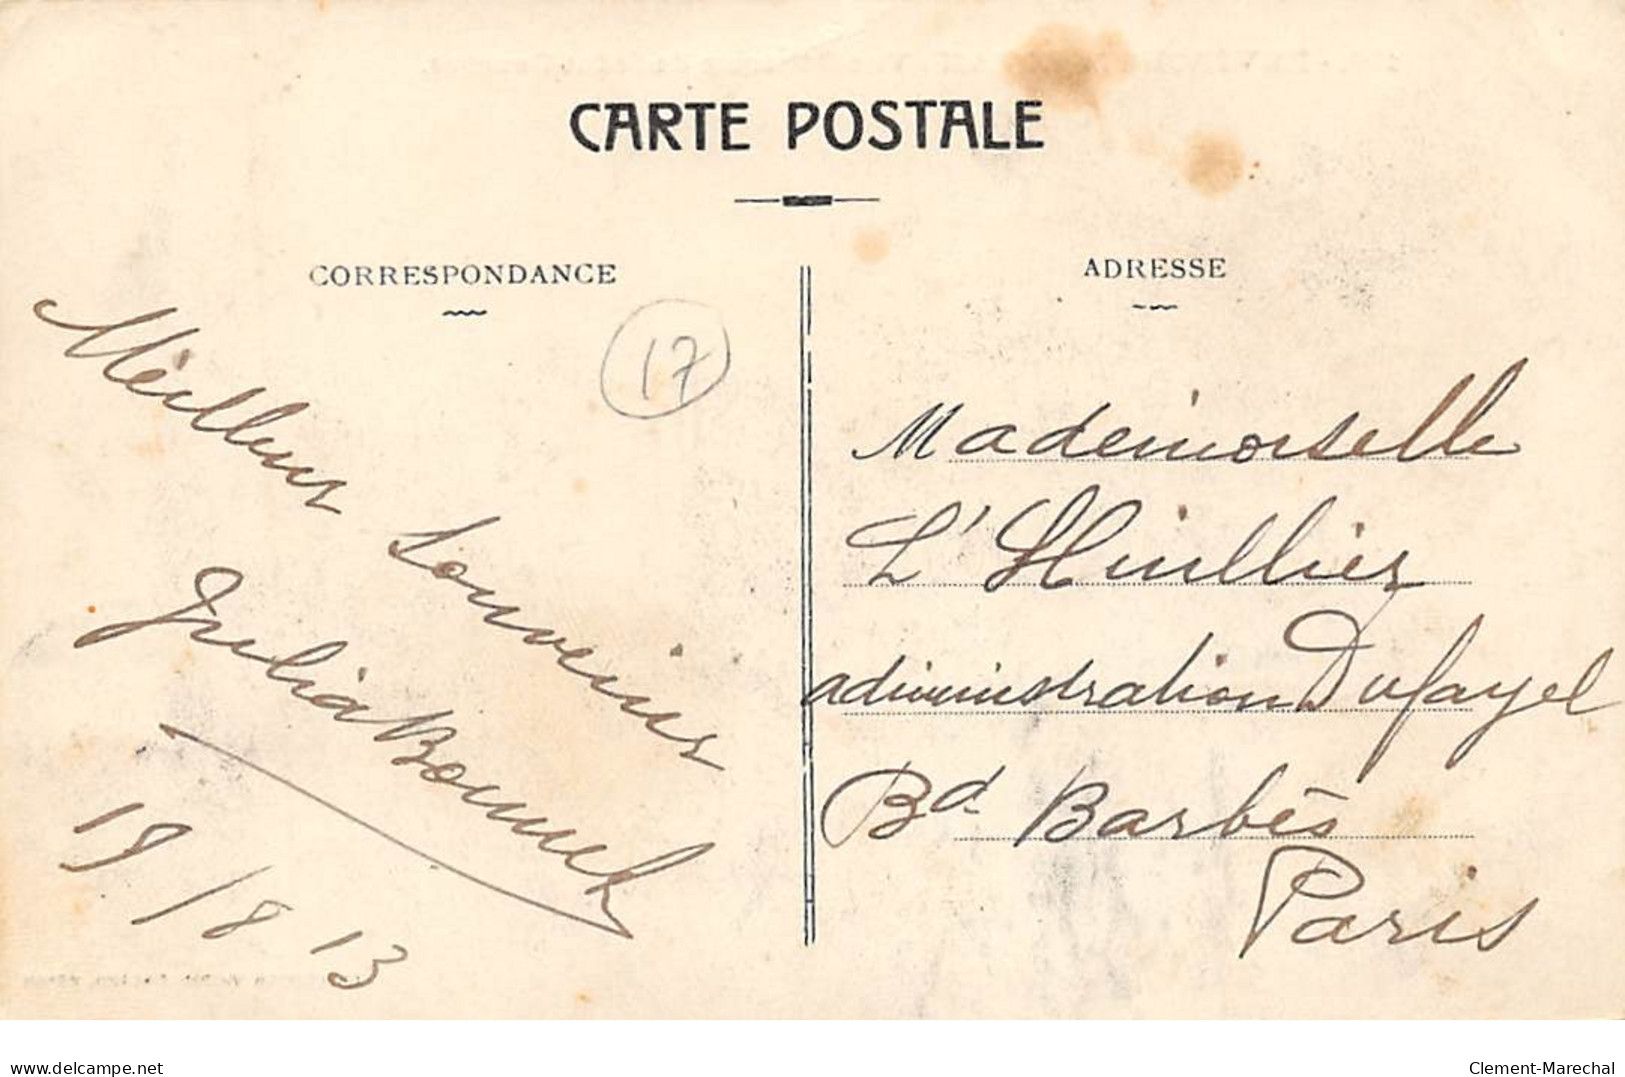 CARTE POSTALE
CORRESPONDANCE
17
Meilleurs Souvenirs
Julia Bonnet
19/8 13
ADRESSE
Mademoiselle
L'Huillier
administration Dufayel
Bd Barbès
Paris
delcampe.net
Clement-Marechal